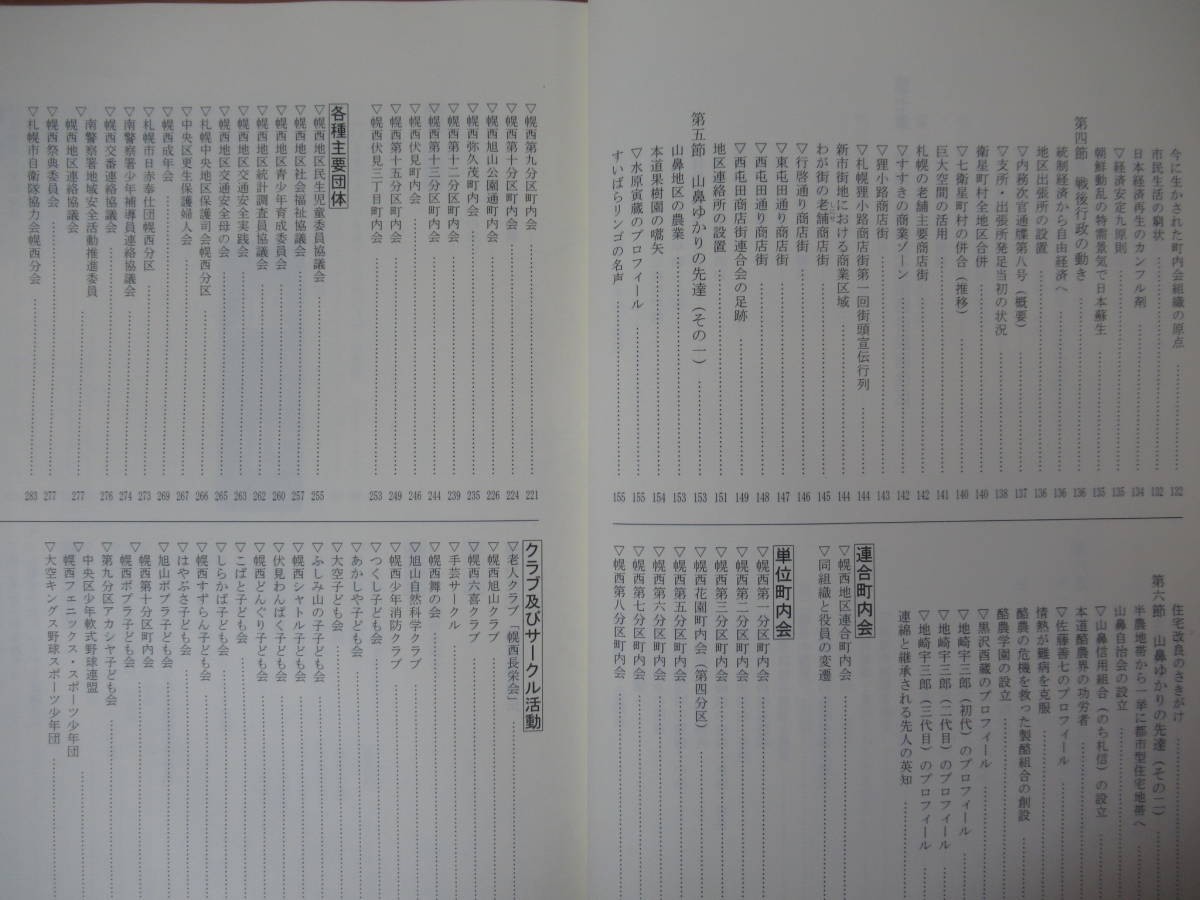 今に生かされた町内会組織の原点 132
市民生活の窮状 132
日本経済再生のカンフル剤 134
▽経済安定九原則 135
朝鮮動乱の特需景気で日本蘇生 135
第四節 戦後行政の動き 136
統制経済から自由経済へ 136
地区出張所の設置 136
▽内務次官通牒第八号（概要） 137
▽支所・出張所発足当初の状況 138
衛星町村全地区合併 140
▽七衛星町村の併合（推移） 140
巨大空間の活用 141
札幌の老舗主要商店街 142
▽すすきの商業ゾーン 142
▽狸小路商店街 143
▽札幌狸小路商店街第一回街頭宣伝行列 144
新市街地における商業区域 144
わが街の老舗商店街 145
▽行啓通り商店街 146
▽東屯田通り商店街 147
▽西屯田通り商店街 148
▽西屯田商店街連合会の足跡 149
地区連絡所の設置 151
第五節 山鼻ゆかりの先達（その一） 153
山鼻地区の農業 153
本道果樹園の嚆矢 154
▽水原寅蔵のプロフィール 155
すいばらリンゴの名声 155
住宅改良のさきがけ
第六節 山鼻ゆかりの先達（その二）
半農地帯から一挙に都市型住宅地帯へ
山鼻自治会の設立
▽山鼻信用組合（のち札信）の設立
本道酪農界の功労者
▽佐藤善七のプロフィール
情熱が難病を克服
酪農の危機を救った製酪組合の創設
酪農学園の設立
▽黒沢酉蔵のプロフィール
▽地崎宇三郎（初代）のプロフィール
▽地崎宇三郎（二代目）のプロフィール
▽地崎宇三郎（三代目）のプロフィール
連綿と継承される先人の英知
連合町内会
▽幌西地区連合町内会
▽同組織と役員の変遷
単位町内会
▽幌西第一分区町内会
▽幌西第二分区町内会
▽幌西第三分区町内会
▽幌西花園町内会（第四分区）
▽幌西第五分区町内会
▽幌西第六分区町内会
▽幌西第七分区町内会
▽幌西第八分区町内会
▽幌西第九分区町内会 221
▽幌西第十分区町内会 224
▽幌西旭山公園通町内会 226
▽幌西弥久茂町町内会 235
▽幌西第十二分区町内会 239
▽幌西第十三分区町内会 244
▽幌西伏見町内会 246
▽幌西第十五分区町内会 249
▽幌西伏見三丁目町内会 253
各種主要団体
▽幌西地区民生児童委員協議会 255
▽幌西地区社会福祉協議会 257
▽幌西地区青少年育成委員会 260
▽幌西地区統計調査員協議会 262
▽幌西地区交通安全実践会 263
▽幌西地区交通安全母の会 265
▽札幌中央地区保護司会幌西分区 266
▽中央区更生保護婦人会 267
▽幌西成年会 269
▽札幌市日赤奉仕団幌西分区 273
▽南警察署少年補導員連絡協議会 274
▽幌西交番連絡協議会 276
南警察署地域安全活動推進委員
幌西地区連絡協議会 277
▽幌西祭典委員会 277
▽札幌市自衛隊協力会幌西分会 283
クラブ及びサークル活動
▽老人クラブ「幌西長栄会」
▽幌西旭山クラブ
▽幌西六喜クラブ
▽手芸サークル
▽幌西舞の会
▽旭山自然科学クラブ
▽幌西少年消防クラブ
▽つくし子ども会
▽あかしや子ども会
▽大空子ども会
▽ふしみ山の子子ども会
▽幌西シャトル子ども会
▽伏見わんぱく子ども会
▽幌西どんぐり子ども会
▽こばと子ども会
▽しらかば子ども会
▽幌西すずらん子ども会
▽はやぶさ子ども会
▽旭山ポプラ子ども会
▽幌西第十分区町内会
幌西ポプラ子ども会
▽第九分区アカシヤ子ども会
▽中央区少年軟式野球連盟
幌西フェニックス・スポーツ少年団
▽大空キングス野球スポーツ少年団